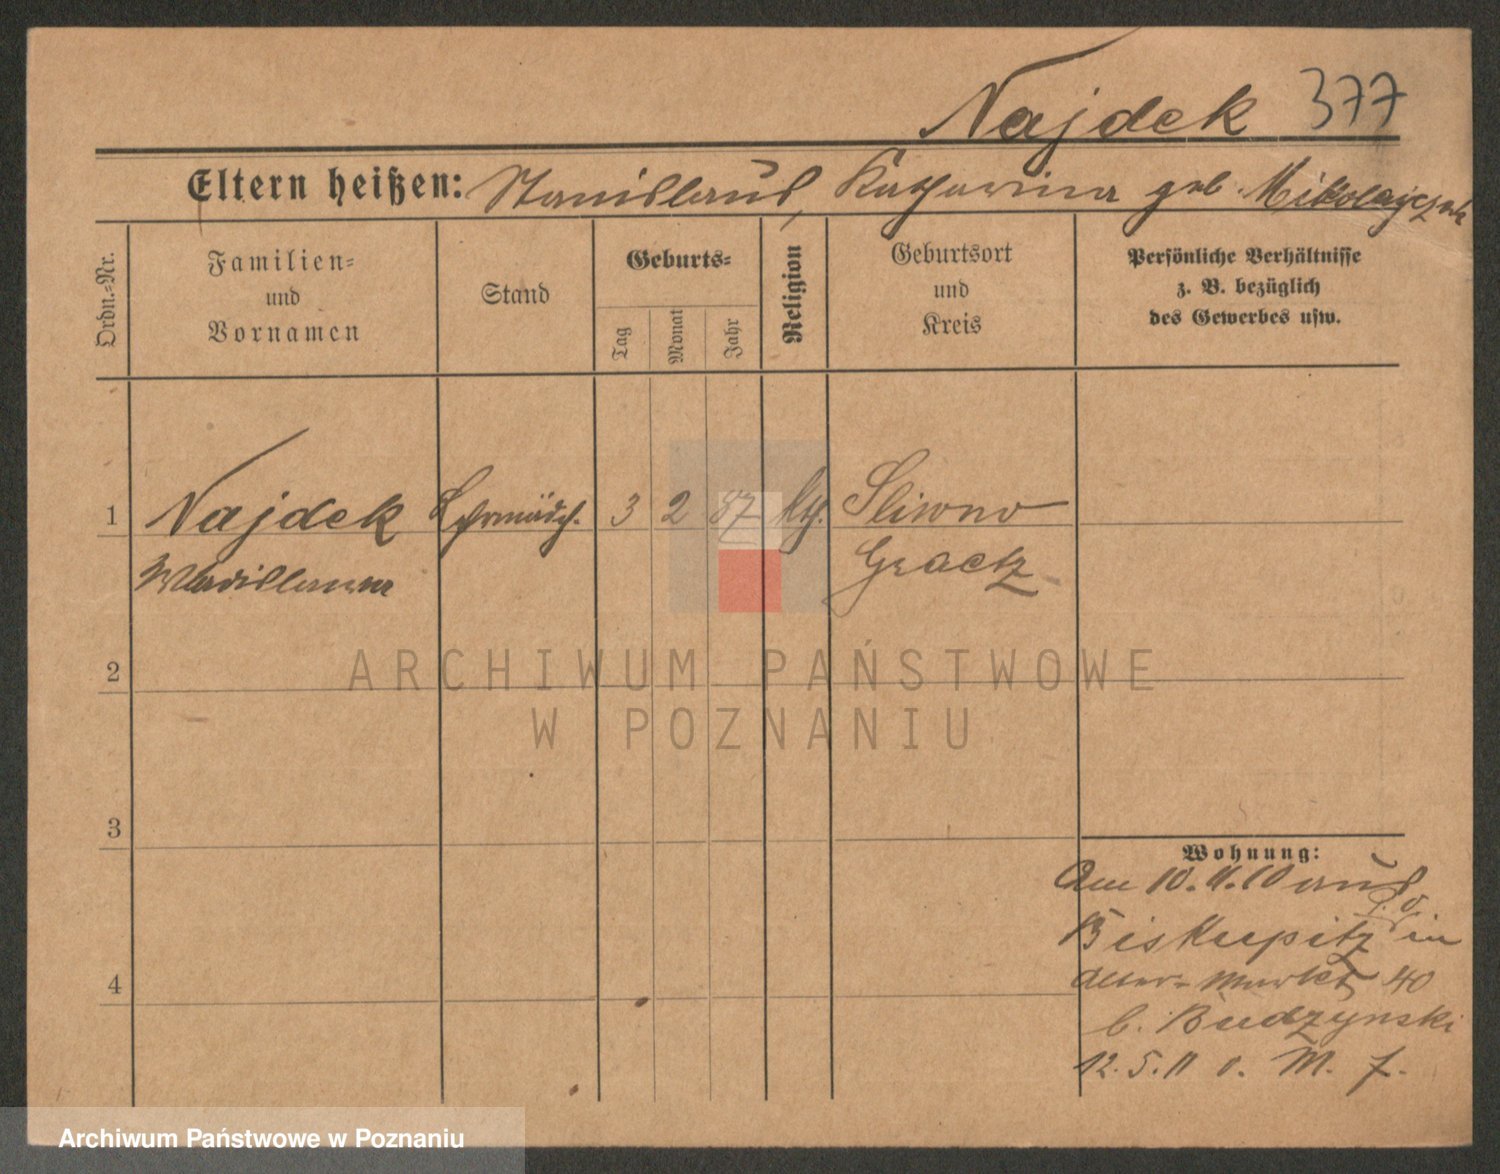 Najdek 377
Eltern heißen: Stanislaus, Katharina geb. Mikolajczak
Ordn.=Nr.
Familien=
und
Vornamen
Stand
Geburts=
Tag
Monat
Jahr
Religion
Geburtsort
und
Kreis
Persönliche Verhältnisse
z. B. bezüglich
des Gewerbes usw.
1 Najdek Lehrmädch. 3 2 87 kth. Sliwno
Wladislawa Graetz
2
3
4
Wohnung:
Am 10.11.10 aus
Biskupitz in
Alter Markt 40
b. Budzynski
12.5.11 v. M. f.
ARCHIWUM PAŃSTWOWE
W POZNANIU
Archiwum Państwowe w Poznaniu